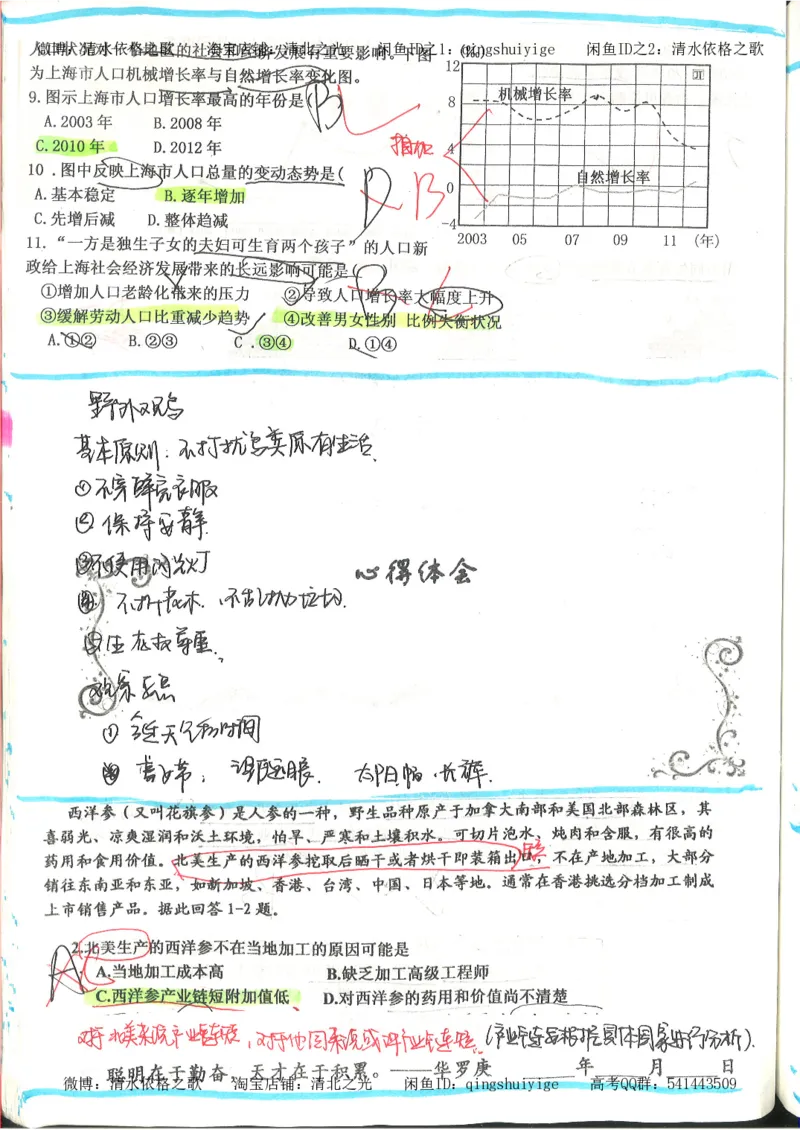 微博：清水依格之歌 淘宝店铺：清北之光 闲鱼ID之1：qingshuiyige 闲鱼ID之2：清水依格之歌
为上海市人口机械增长率与自然增长率变化图。
9.图示上海市人口增长率最高的年份是( B
A.2003年 B.2008年
C.2010年 D.2012年
10.图中反映上海市人口总量的变动态势是( D B
A.基本稳定 B.逐年增加
C.先增后减 D.整体趋减
11.“一方是独生子女的夫妇可生育两个孩子”的人口新
政给上海社会经济发展带来的长远影响可能是(
①增加人口老龄化带来的压力 ②导致人口增长率大幅度上升
③缓解劳动人口比重减少趋势 ④改善男女性别比例失衡状况
A.①② B.②③ C.③④ D.①④
(‰)
12
8
4
0
-4
机械增长率
自然增长率
2003 05 07 09 11 (年)
野外观鸟
基本原则：不打扰鸟类原有生活.
①不穿鲜亮衣服
②保持安静.
③不使用闪光灯
④不折树木.不乱抛垃圾.
心得体会
观察要点
①合适天气和时间
②望远镜.太阳帽.长裤.
西洋参（又叫花旗参）是人参的一种，野生品种原产于加拿大南部和美国北部森林区，其
喜弱光、凉爽湿润和沃土环境，怕旱、严寒和土壤积水。可切片泡水、炖肉和含服，有很高的
药用和食用价值。北美生产的西洋参挖取后晒干或者烘干即装箱出口，不在产地加工，大部分
短
销往东南亚和东亚，如新加坡、香港、台湾、中国、日本等地。通常在香港挑选分档加工制成
上市销售产品。据此回答1-2题。
2.北美生产的西洋参不在当地加工的原因可能是
A.当地加工成本高 B.缺乏加工高级工程师
C.西洋参产业链短附加值低 D.对西洋参的药用和价值尚不清楚
对于北美来说产业链短，对于他国来说或许产业链长短.(产业链长短根据具体国家进行分析).
聪明在于勤奋，天才在于积累。——华罗庚 年 月 日
微博：清水依格之歌 淘宝店铺：清北之光 闲鱼ID：qingshuiyige 高考QQ群：541443509